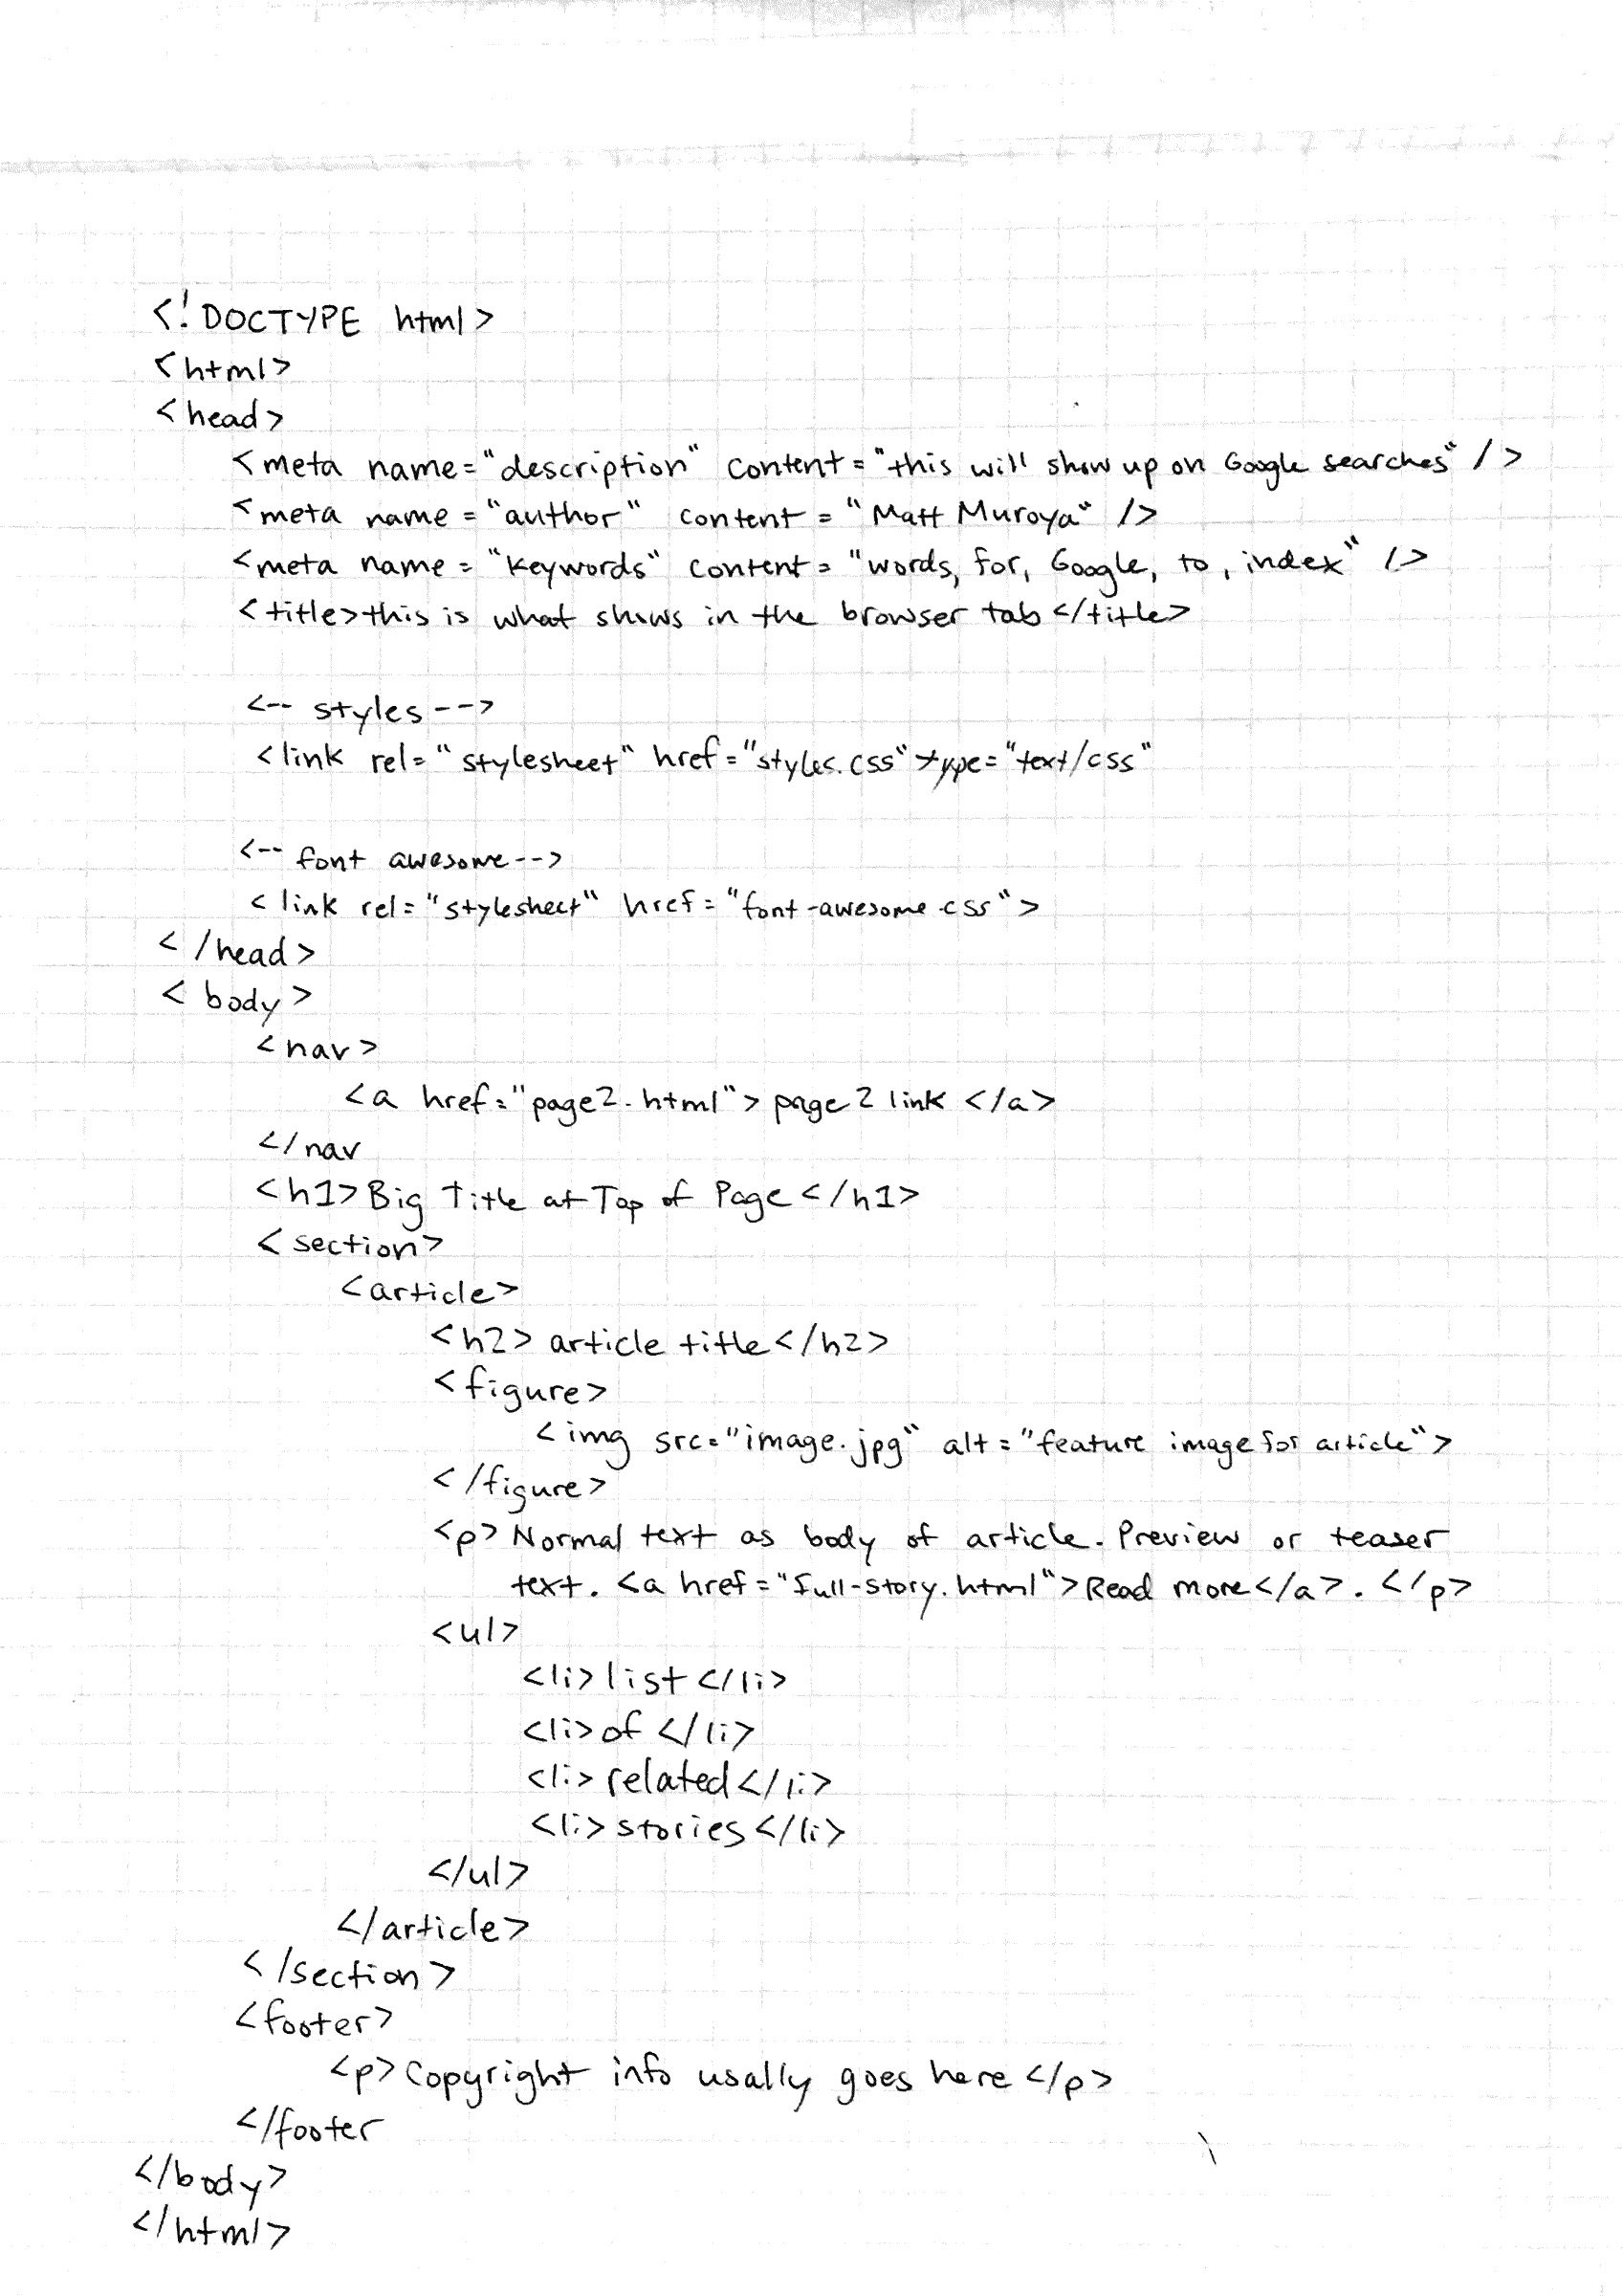 <!DOCTYPE html>
<html>
<head>
<meta name="description" content="this will show up on Google searches" />
<meta name="author" content="Matt Muroya" />
<meta name="keywords" content="words, for, Google, to, index" />
<title>this is what shows in the browser tab</title>
<-- styles -->
<link rel="stylesheet" href="styles.css" type="text/css"
<-- font awesome -->
<link rel="stylesheet" href="font-awesome.css">
</head>
<body>
<nav>
<a href="page2.html">page 2 link </a>
</nav
<h1>Big Title at Top of Page</h1>
<section>
<article>
<h2> article title</h2>
<figure>
<img src="image.jpg" alt="feature image for article">
</figure>
<p>Normal text as body of article. Preview or teaser
text. <a href="full-story.html">Read more</a>. </p>
<ul>
<li>list</li>
<li>of </li>
<li>related</li>
<li>stories</li>
</ul>
</article>
</section>
<footer>
<p>Copyright info usally goes here </p>
</footer
</body>
</html>